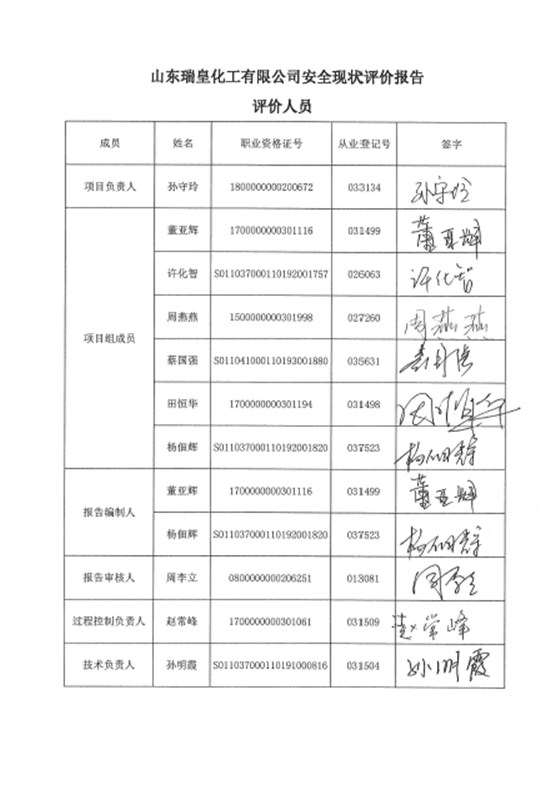 山东瑞皇化工有限公司安全现状评价报告
评价人员
成员 姓名 职业资格证号 从业登记号 签字
项目负责人 孙守玲 1800000000200672 033134 孙守玲
项目组成员
董亚辉 1700000000301116 031499 董亚辉
许化智 S011037000110192001757 026063 许化智
周燕燕 1500000000301998 027260 周燕燕
蔡国强 S011041000110193001880 035631
田恒华 1700000000301194 031498
杨佃辉 S011037000110192001820 037523 杨佃辉
报告编制人
董亚辉 1700000000301116 031499 董亚辉
杨佃辉 S011037000110192001820 037523 杨佃辉
报告审核人 周李立 0800000000206251 013081 周李立
过程控制负责人 赵常峰 1700000000301061 031509 赵常峰
技术负责人 孙明霞 S011037000110191000816 031504 孙明霞